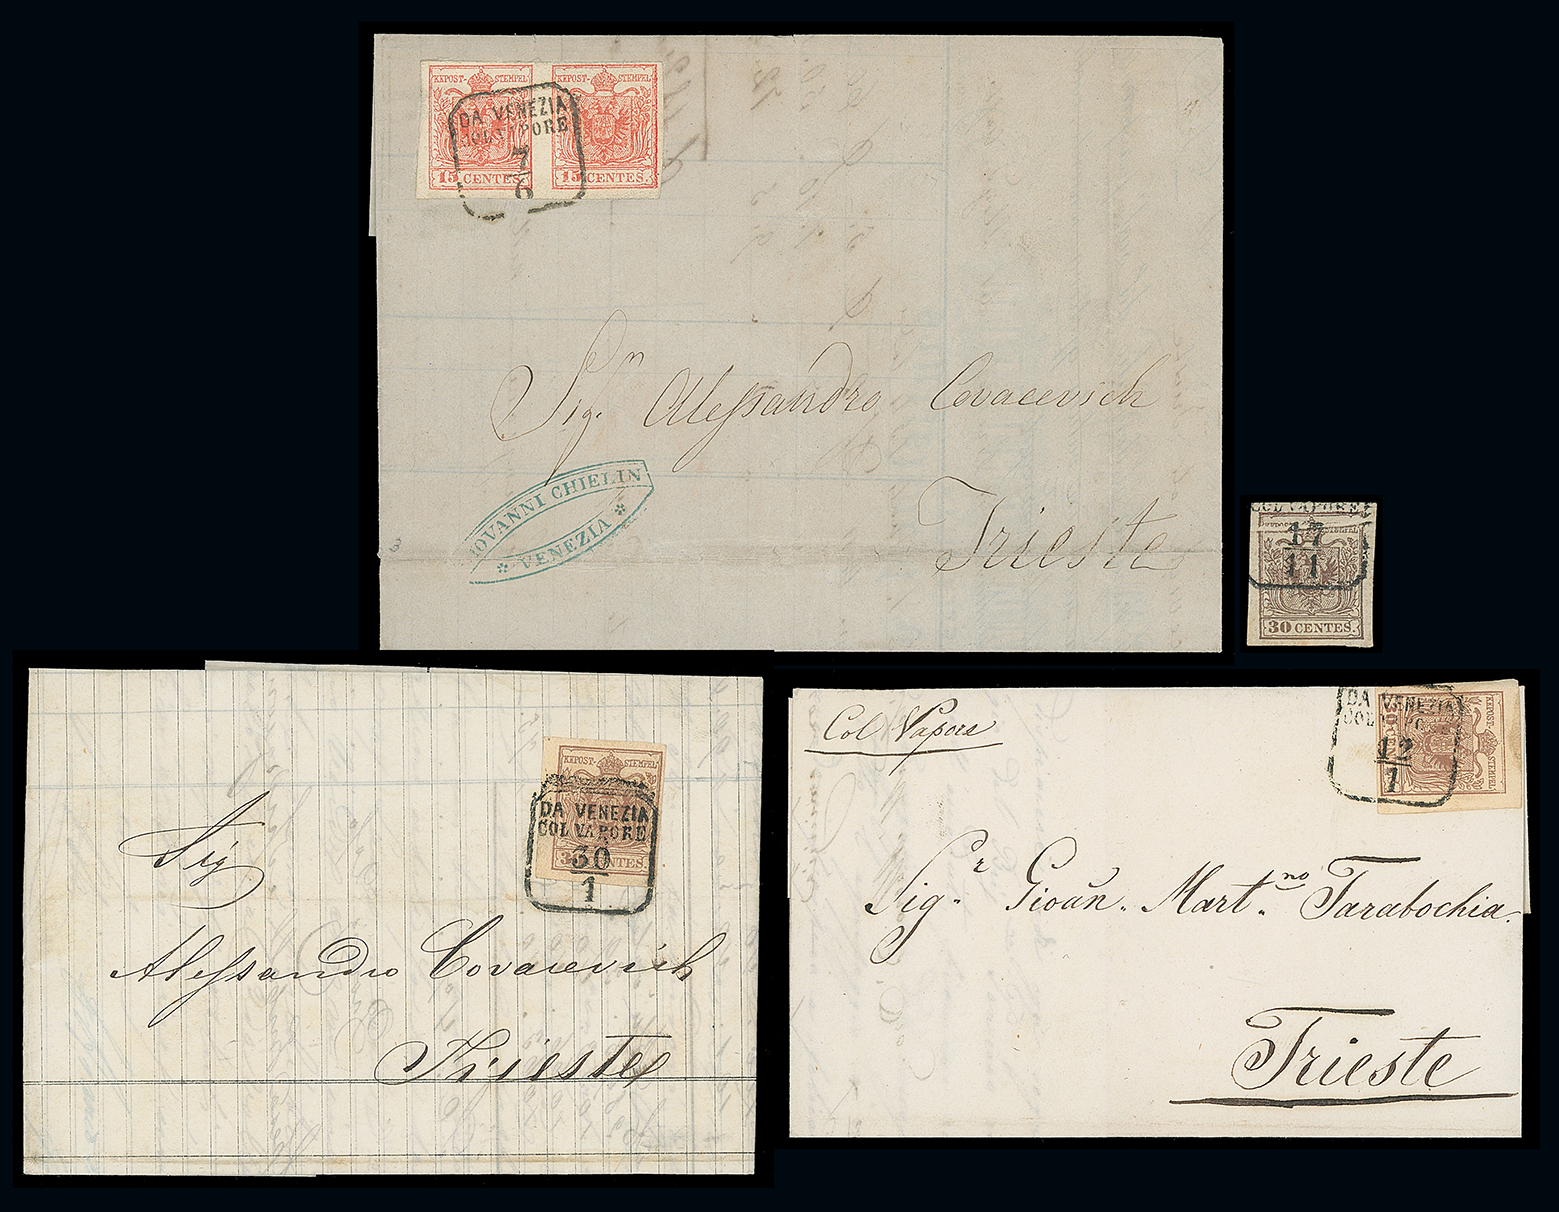 KKPOST-STEMPEL KKPOST-STEMPEL
DA VENEZIA
COL VAPORE
7
6
15 CENTES. 15 CENTES.
Sigʳ. Alessandro Covacevich
Trieste
GIOVANNI CHIELIN
* VENEZIA *
COL VAPORE
17
11
KKPOST-STEMPEL
30 CENTES.
KKPOST-STEMPEL
DA VENEZIA
COL VAPORE
30
1
30 CENTES.
Sig
Alessandro Covacevich
Trieste
Col Vapore
DA VENEZIA
COL VAPORE
12
1
KKPOST-STEMPEL
Sigʳ. Gioan. Mart.ⁿᵒ Tarabochia.
Trieste